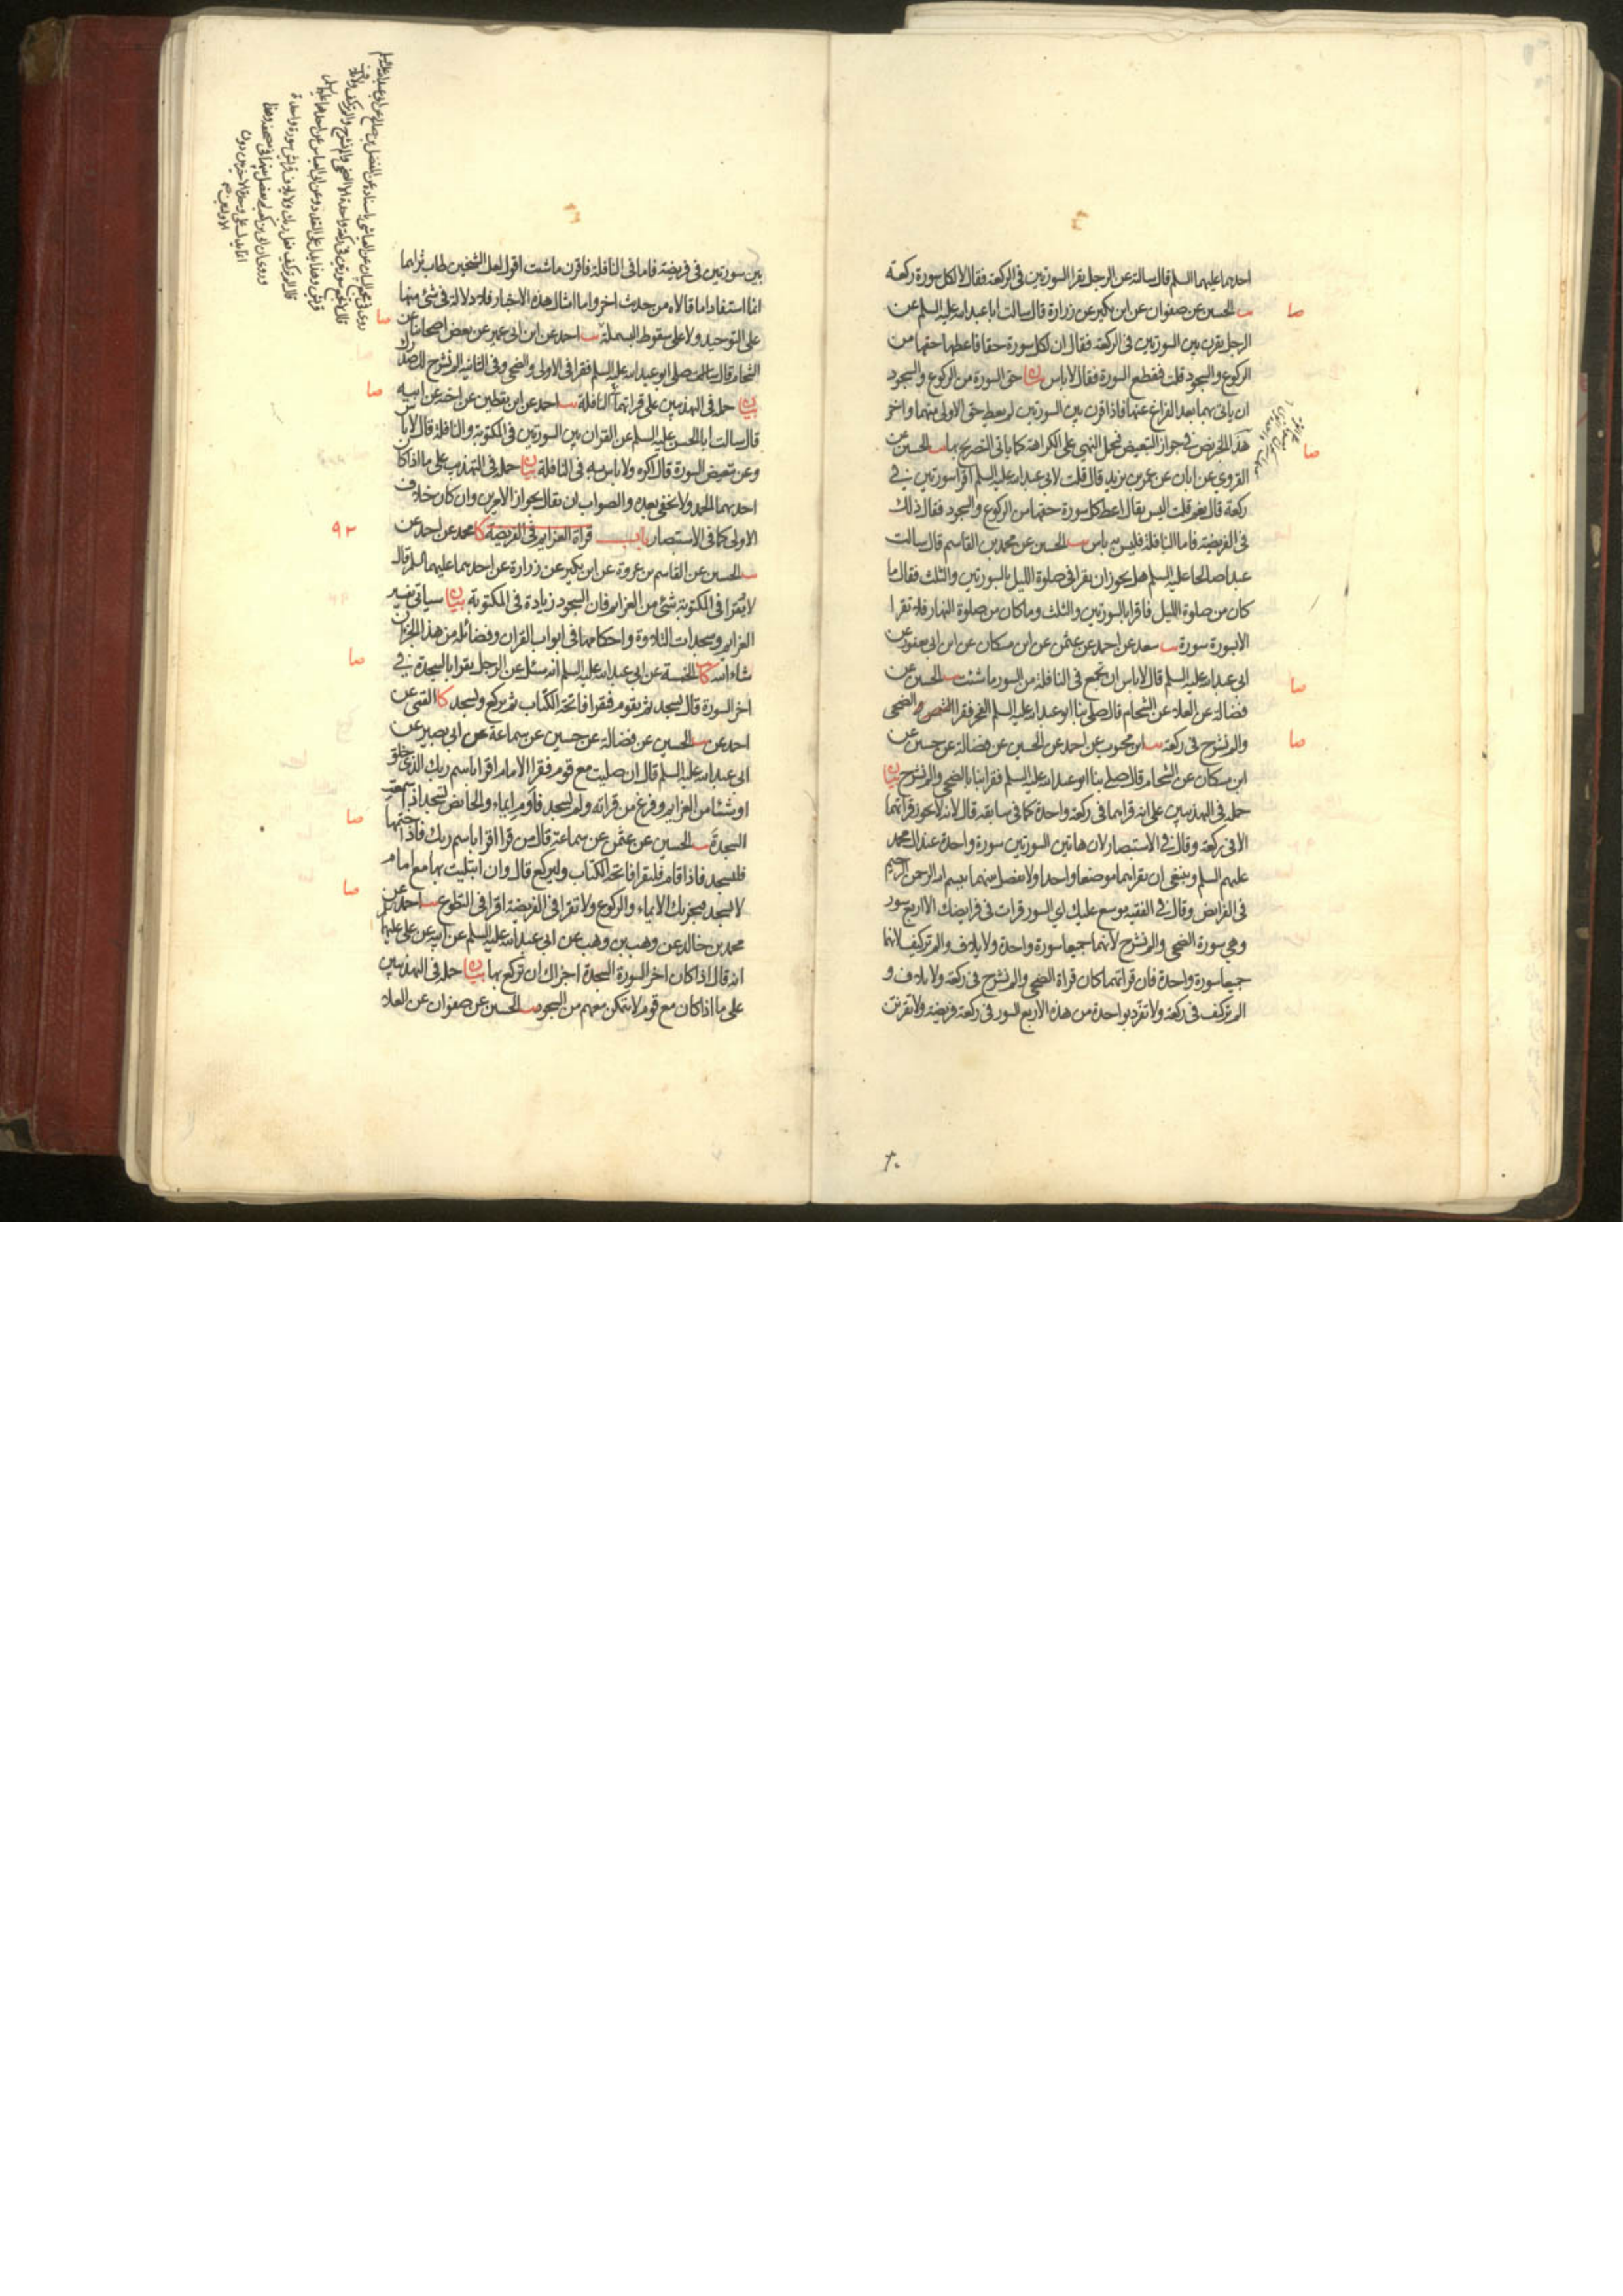 احدهما عليهما السلم قال سالته عن الرجل يقرا السورتين فى الركعة فقال لا لكل سورة ركعة
يب الحسين عن صفوان عن ابن بكير عن زرارة قال سالت ابا عبد الله عليه السلم عن
الرجل يقرن بين السورتين فى الركعة فقال ان لكل سورة حقا فاعطها حقها من
الركوع والسجود قلت فيقطع السورة فقال لا باس بيان حق السورة من الركوع والسجود
ان ياتى بهما بعد الفراغ عنها فاذا قرن بين السورتين لم يعط حق الاولى منهما واخر
هذا الخبر نص فى جواز التبعيض فحمل النهى على الكراهة كما ياتى التصريح بها يب الحسين عن
القروى عن ابان عن عمر بن يزيد قال قلت لابى عبد الله عليه السلم اقرا سورتين فى
ركعة قال نعم قلت اليس يقال اعط كل سورة حقها من الركوع والسجود فقال ذلك
فى الفريضة فاما النافلة فليس به باس يب الحسين عن محمد بن القاسم قال سالت
عبدا صالحا عليه السلم هل يجوز ان يقرا فى صلوة الليل بالسورتين والثلث فقال ما
كان من صلوة الليل فاقرا بالسورتين والثلث وما كان من صلوة النهار فلا تقرا
الا بسورة سورة يب سعد عن احمد عن عثمن عن ابن مسكان عن ابن ابى يعفور عن
ابى عبد الله عليه السلم قال لا باس ان تجمع فى النافلة من السور ما شئت يب الحسين عن
فضالة عن العلا عن الشحام قال صلى بنا ابو عبد الله عليه السلم الفجر فقرا الضحى
والم نشرح فى ركعة يب ابن محبوب عن احمد عن الحسين عن فضالة عن حسين عن
ابن مسكان عن الشحام قال صلى بنا ابو عبد الله عليه السلم فقرا بنا بالضحى والم نشرح بيان
حمله فى التهذيبين على انه قراهما فى ركعة واحدة كما فى سابقه قال لانه لا يجوز قراتهما
الا فى ركعة وقال فى الاستبصار لان هاتين السورتين سورة واحدة عند ال محمد
عليهم السلم وينبغى ان يقراهما موضعا واحدا ولا يفصل بينهما ببسم الله الرحمن الرحيم
فى الفرايض وقال فى الفقيه موسع عليك اى السور قرات فى فرايضك الا اربع سور
وهى سورة الضحى والم نشرح لانهما جميعا سورة واحدة ولايلاف والم تر كيف لانهما
جميعا سورة واحدة فان قراتهما كان قراة الضحى والم نشرح فى ركعة ولايلاف و
الم تر كيف فى ركعة ولا تفرد بواحدة من هذه الاربع السور فى ركعة فريضة ولا تقرنن
صا
صا
صا
صا
بين سورتين فى فريضة فاما فى النافلة فاقرن ما شئت اقول لعل الشيخين طاب ثراهما
انما استفادا ما قالاه من حديث اخر واما امثال هذه الاخبار فلا دلالة فى شئ منها
على التوحيد ولا على سقوط البسملة يب احمد عن ابن ابى عمير عن بعض اصحابنا عن
الشحام قال صلى ابو عبد الله عليه السلم فقرا فى الاولى والضحى وفى الثانية الم نشرح لك صدرك
بيان حمله فى التهذيبين على قراتهما النافلة يب احمد عن ابن يقطين عن اخيه عن ابيه
قال سالت ابا الحسن عليه السلم عن القران بين السورتين فى المكتوبة والنافلة قال لا باس
وعن تبعيض السورة قال اكره ولا باس به فى النافلة بيان حمله فى التهذيب على ما اذا كان
احديهما الحمد ولا يخفى بعده والصواب ان يقال بجواز الامرين وان كان خلاف
الاولى كما فى الاستبصار باب قراة العزايم فى الفريضة كا محمد عن احمد عن
يب الحسين عن القاسم بن عروة عن ابن بكير عن زرارة عن احدهما عليهما السلم قال
لا يقرا فى المكتوبة شئ من العزايم فان السجود زيادة فى المكتوبة بيان سياتى تفسير
العزايم وسجدات التلاوة واحكامها فى ابواب القران وفضائله من هذا الجزء ان
شاء الله كا الخمسة عن ابى عبد الله عليه السلم انه سئل عن الرجل يقرا بالسجدة فى
اخر السورة قال يسجد ثم يقوم فيقرا فاتحة الكتاب ثم يركع ويسجد كا القمى عن
احمد عن يب الحسين عن فضالة عن حسين عن سماعة عن ابى بصير عن
ابى عبد الله عليه السلم قال ان صليت مع قوم فقرا الامام اقرا باسم ربك الذى خلق
او شيئا من العزايم وفرغ من قراته ولم يسجد فاوم ايماء والحائض تسجد اذا سمعت
السجدة يب الحسين عن عثمن عن سماعة قال من قرا اقرا باسم ربك فاذا ختمها
فليسجد فاذا قام فليقرا فاتحة الكتاب وليركع قال وان ابتليت بها مع امام
لا يسجد فيجزيك الايماء والركوع ولا تقرا فى الفريضة اقرا فى التطوع يب احمد عن
محمد بن خالد عن وهب بن وهب عن ابى عبد الله عليه السلم عن ابيه عن على عليهم
انه قال اذا كان اخر السورة السجدة اجزاك ان تركع بها بيان حمله فى التهذيبين
على ما اذا كان مع قوم لا يتمكن معهم من السجود يب الحسين عن صفوان عن العلا
صا
صا
٩٢
صا
صا
صا